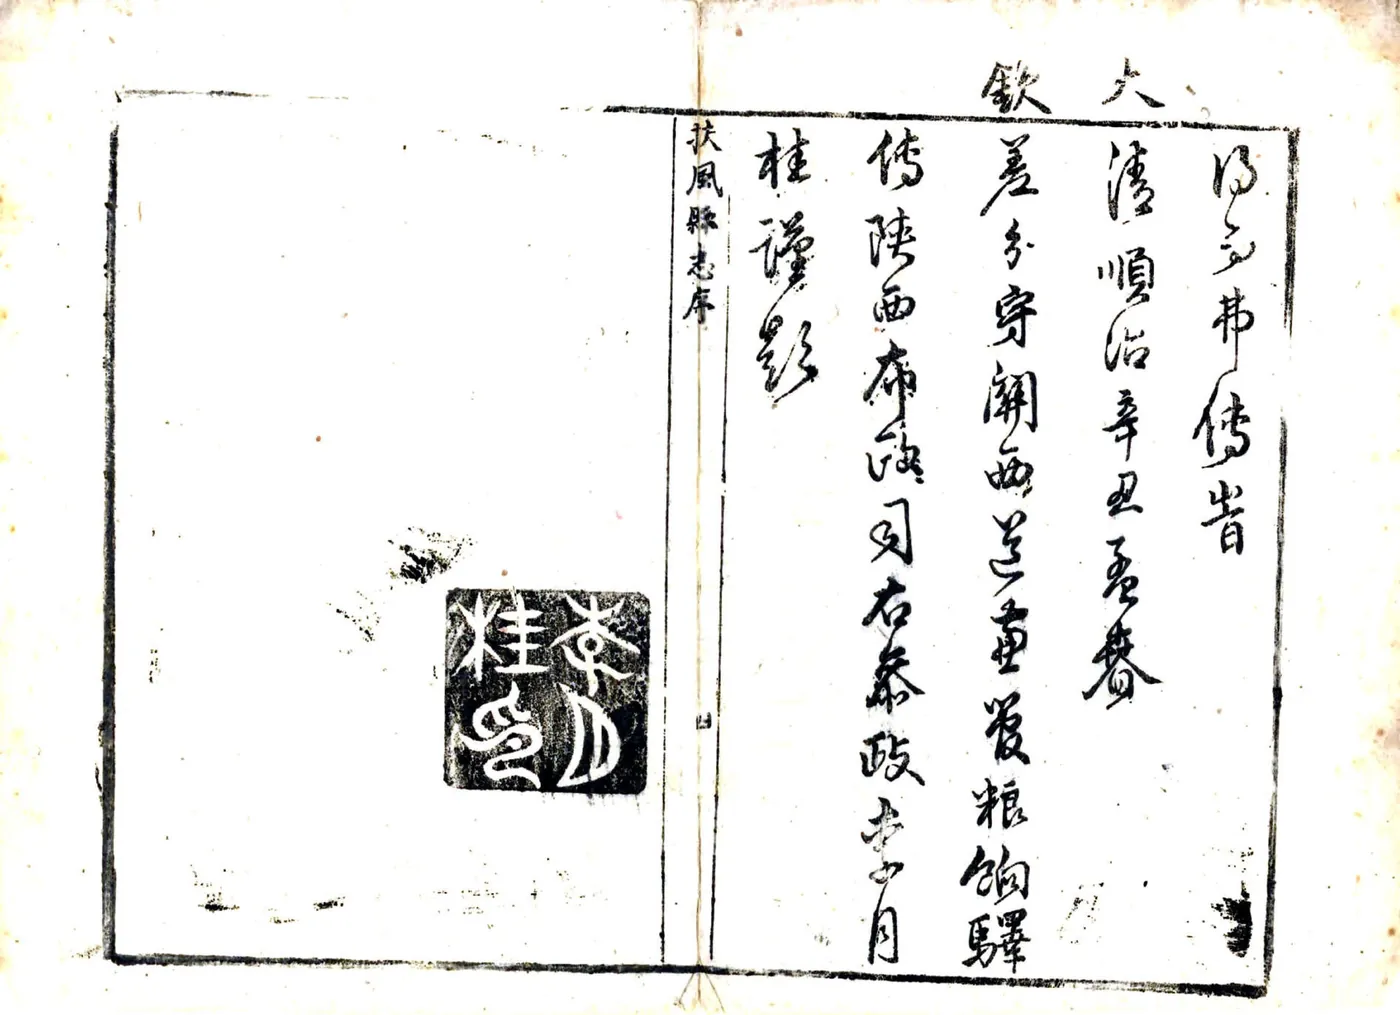 得而弗傳旹
大清順治辛丑孟春
欽差分守關西道兼管粮餉驛
傳陝西布政司右叅政李月
桂謹題
扶風縣志序
四
李月桂印